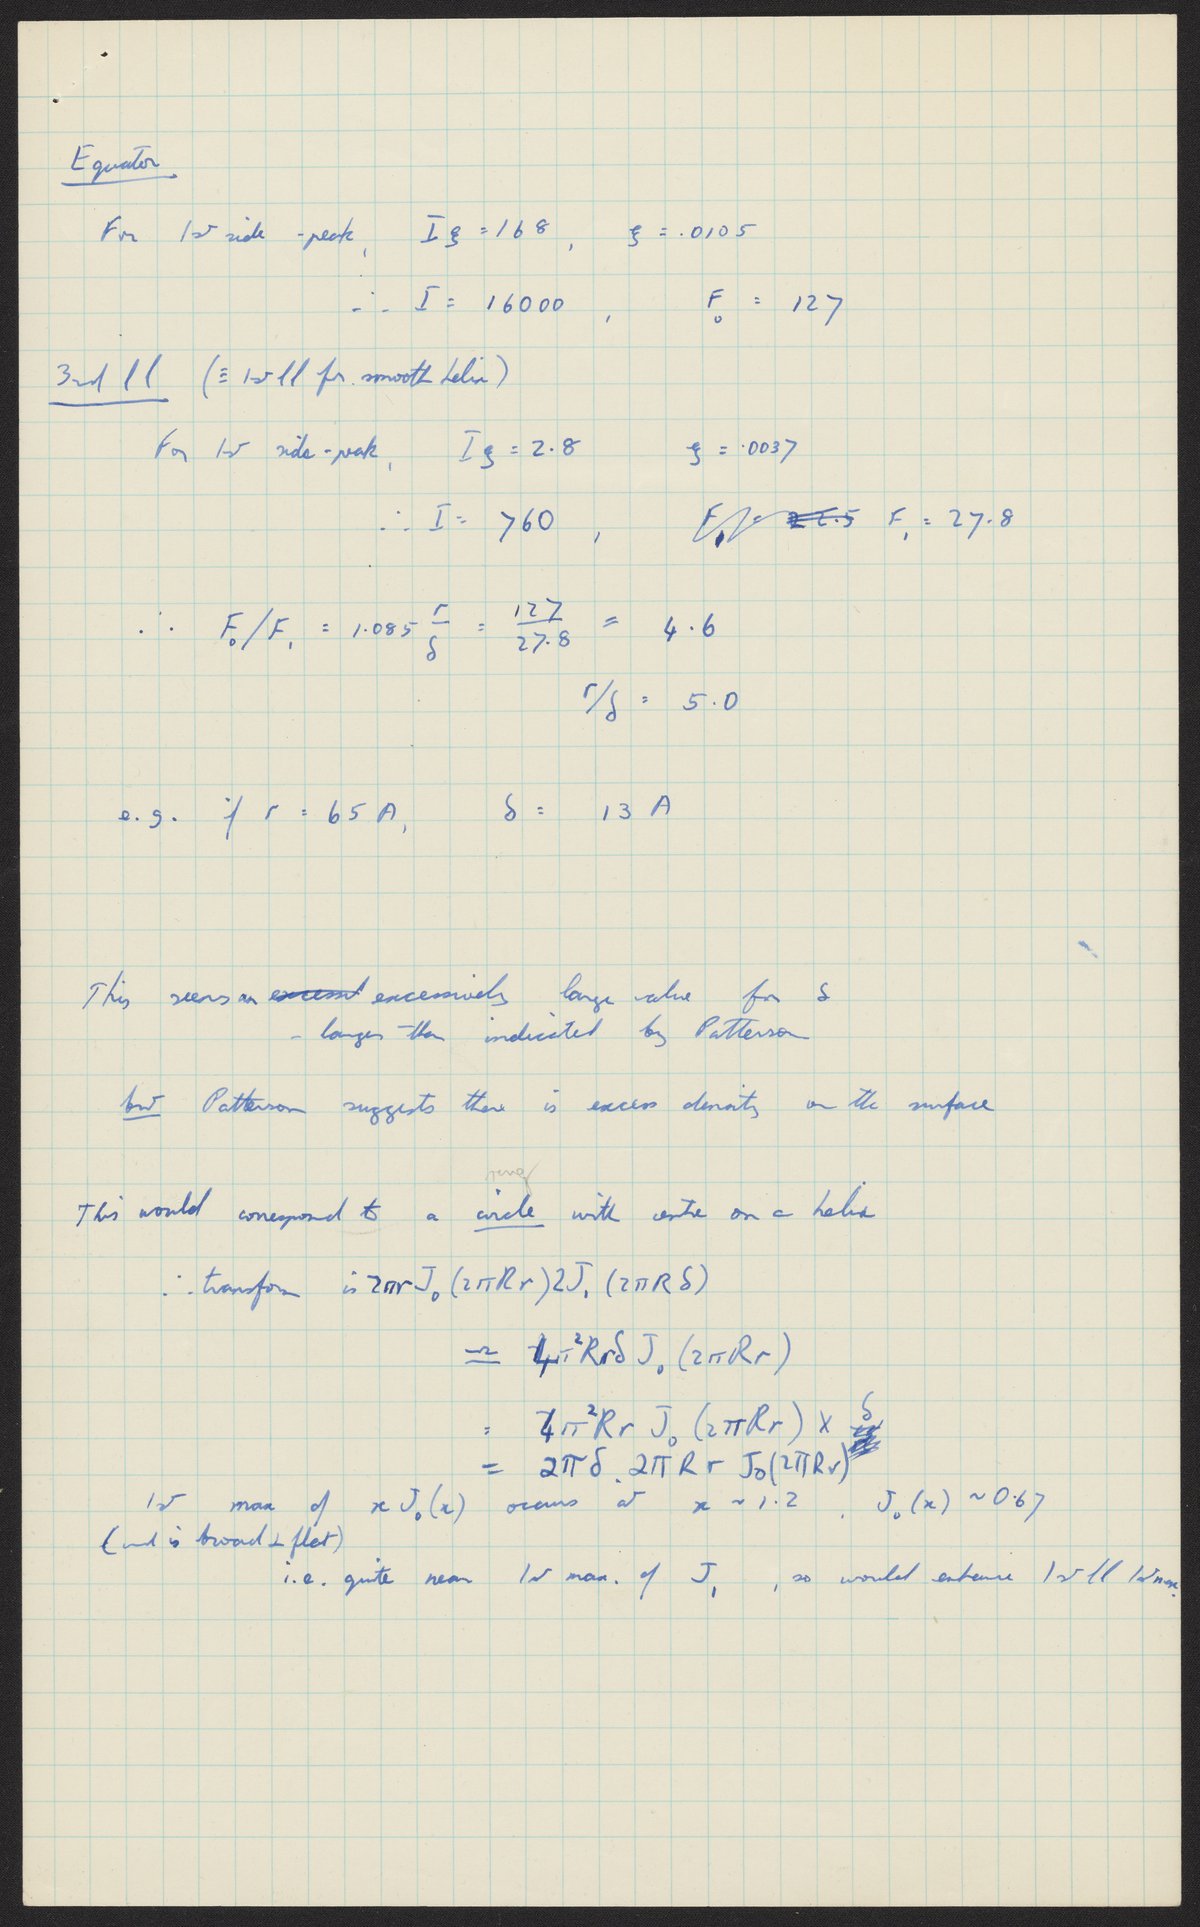 Equator
For 1st side-peak, Iξ = 168, ξ = .0105
∴ I = 16000, F₀ = 127
3rd ll (≡ 1st ll for smooth helix)
For 1st side-peak, Iξ = 2.8 ξ = .0037
∴ I = 760, F₁ = 22.5 F₁ = 27.8
∴ F₀/F₁ = 1.085 r/δ = 127/27.8 = 4.6
r/δ = 5.0
e.g. if r = 65 A, δ = 13 A
This seems an excessively large value for δ
- larger than indicated by Patterson
but Patterson suggests there is excess density on the surface
This would correspond to a circle with centre on a helix
∴ transform is 2πr J₀(2πRr) 2J₁(2πRδ)
≃ 4π²Rrδ J₀(2πRr)
= 4π²Rr J₀(2πRr) × δ
= 2πδ . 2πRr J₀(2πRr)
1st max of x J₀(x) occurs at x ~ 1.2, J₀(x) ~ 0.67
(and is broad & flat)
i.e. quite near 1st max. of J₁, so would enhance 1st ll 1st max.